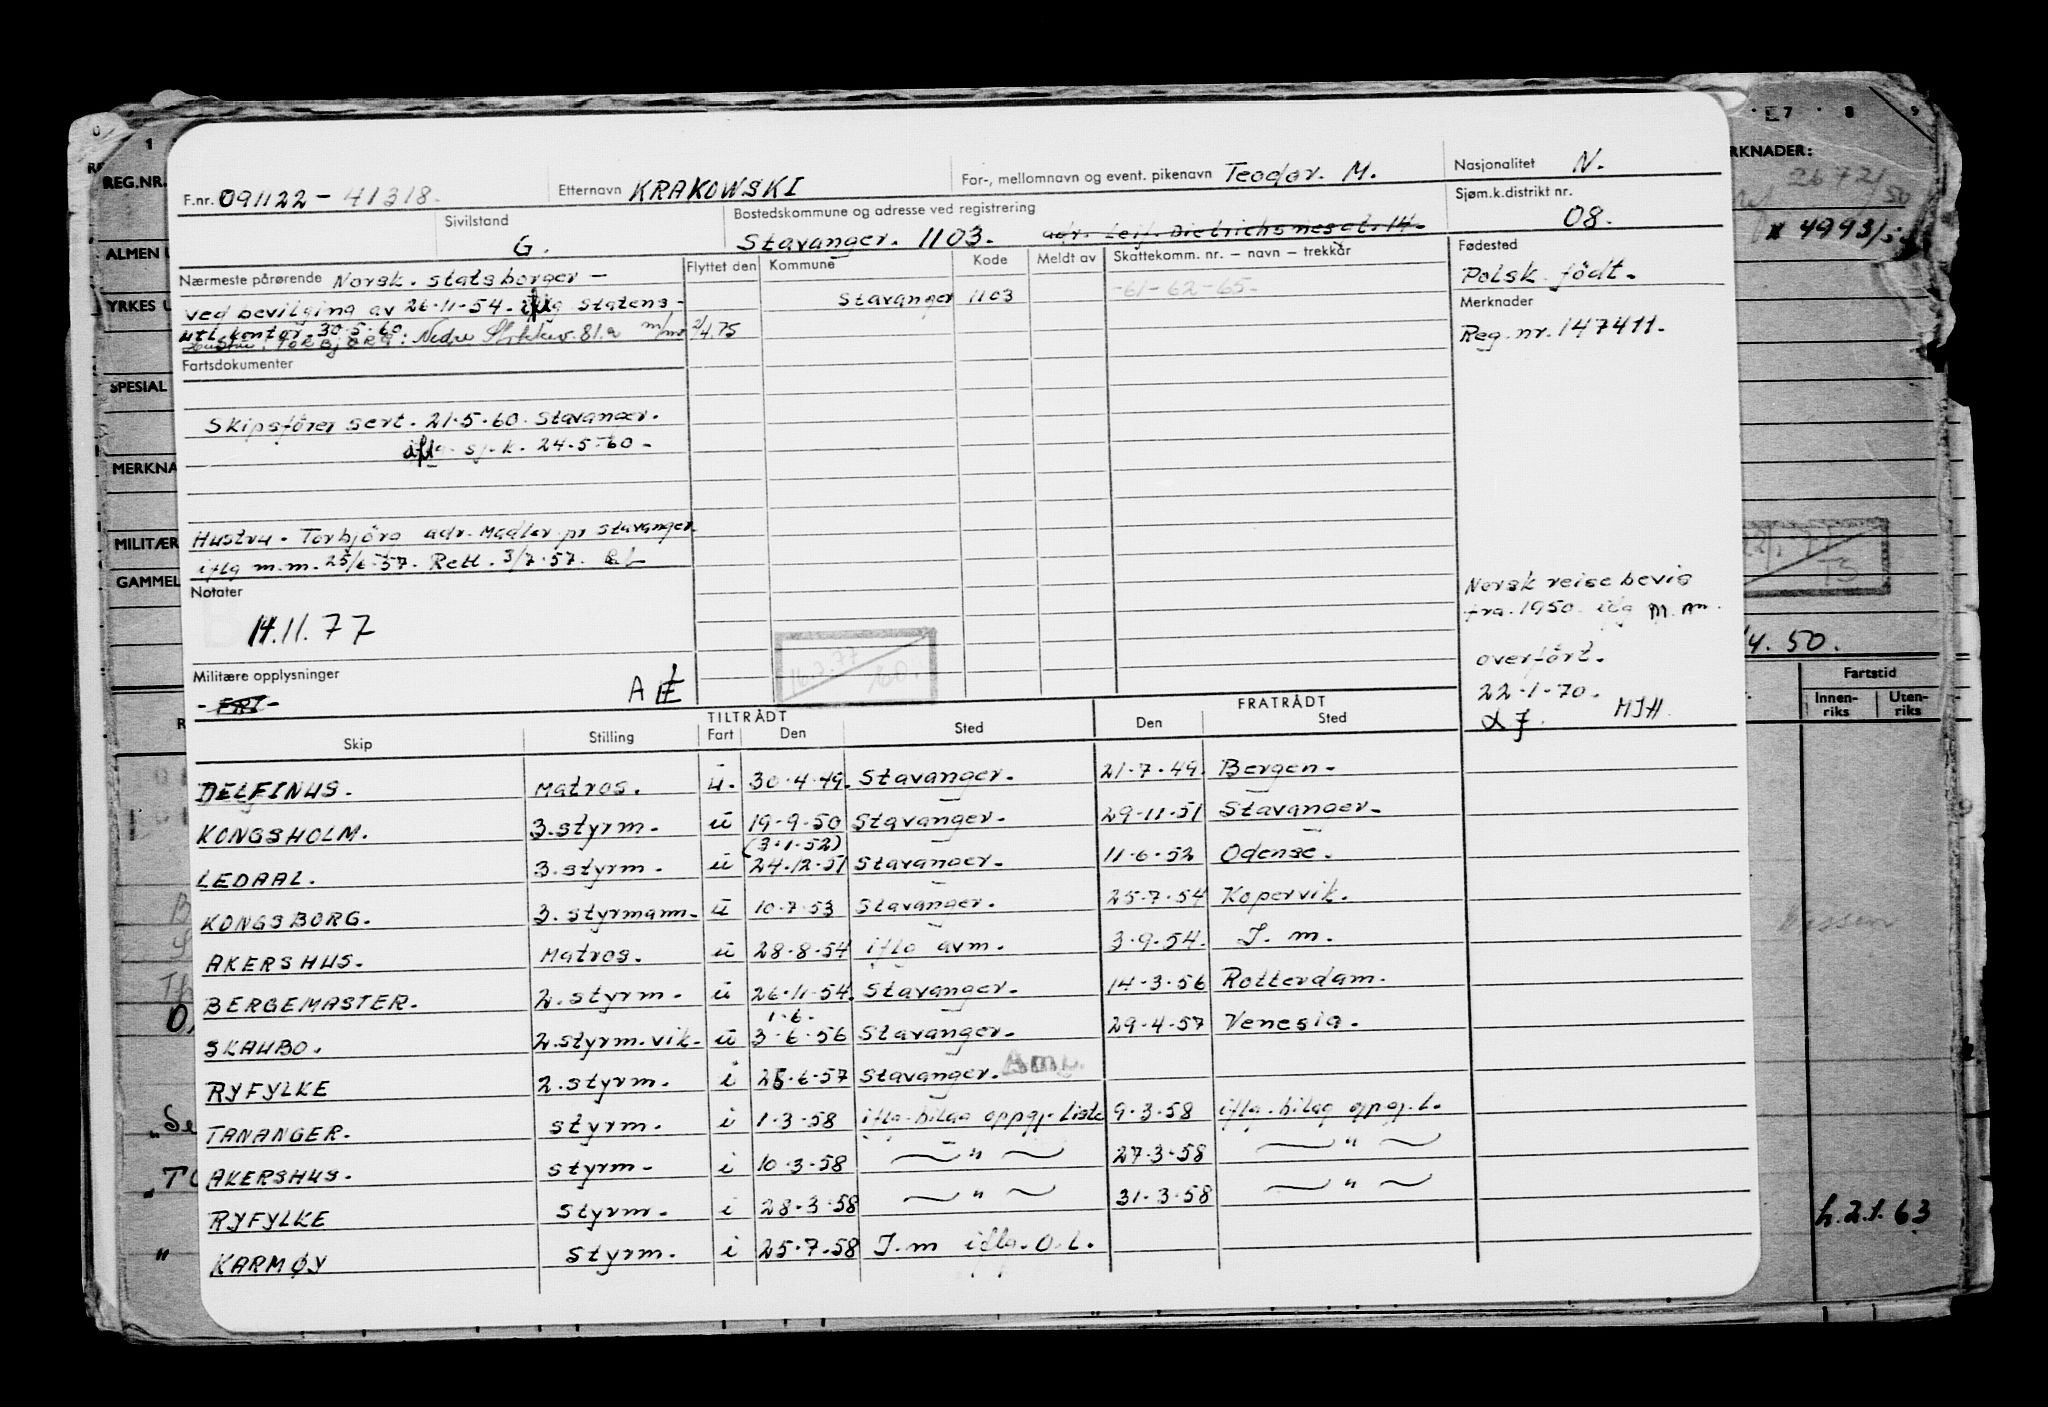 F.nr. 091122 - 41318. Etternavn KRAKOWSKI For-, mellomnavn og event. pikenavn Teodor. M. Nasjonalitet N.
Sivilstand G. Bostedskommune og adresse ved registrering Sjøm.k.distrikt nr. 08.
Stavanger. 1103. adr. Leif. Dietrichsnesgt. 14.
Nærmeste pårørende Norsk. statsborger -
ved bevilging av 26-11-54. iflg Statens -
utl. kontor 30-5-60
Flyttet den Kommune Kode Meldt av Skattekomm. nr. – navn – trekkår
Stavanger 1103 -61-62-65-
2/4.75
Fødested
Polsk. født.
Merknader
Reg. nr. 147411.
Fartsdokumenter
Skipsfører sert. 21-5-60. Stavanger.
iflg. sj. k. 24-5-60 -
Hustru - Torbjörg adr. Madlar pr Stavanger
iflg m.m. 25/6-57. Rett. 3/7-57.
Notater
14.11.77
Militære opplysninger
A
Norsk reise bevis
fra. 1950. iflg m.m.
overført.
22-1-70.
MJH
TILTRÅDT FRATRÅDT
Skip Stilling Fart Den Sted Den Sted
DELFINUS. Matros. u. 30-4-49. Stavanger. 21-7-49. Bergen-
KONGSHOLM. 3.styrm. u 19-9-50 Stavanger. 29-11-51 Stavanger.
(3-1-52)
LEDAAL. 3.styrm. u 24-12-51 Stavanger. 11-6-52 Odense.
KONGSBORG. 3.styrmann. u 10-7-53 Stavanger. 25-7-54 Kopervik.
AKERSHUS. Matros. u 28-8-54 iflg avm. 3-9-54. I. m.
BERGEMASTER. 2.styrm. u 26-11-54. Stavanger. 14-3-56 Rotterdam.
1-6-
SKAUBO. 2.styrm.vik. u 3-6-56 Stavanger. 29-4-57 Venesia.
RYFYLKE 2.styrm. i 25-6-57 Stavanger.
TANANGER. styrm. i 1-3-58 iflg. bilag oppgj. liste 9-3-58 iflg. bilag oppgj. l.
AKERSHUS. styrm- i 10-3-58 — " — 27-3-58 — " —
RYFYLKE styrm. i 28-3-58 — " — 31-3-58 — " —
KARMØY styrm. i 25-7-58 I.m iflg. O.L.
REG.NR.
ALMEN U
YRKES U
SPESIAL
MERKNA
MILITÆR
GAMMEL
RKNADER:
2672/50
4993/5
/4.50.
Fartstid
Innen-riks Uten-riks
h.2.1.63